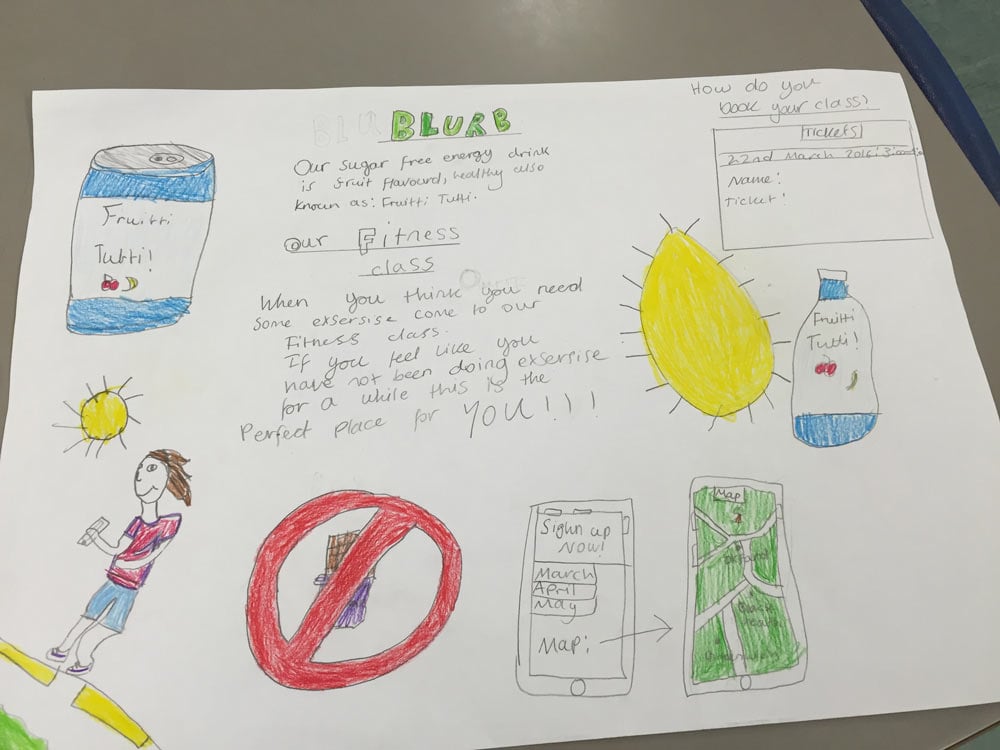 BLURB
Our sugar free energy drink
is fruit flavoured, healthy also
known as: Fruitti Tutti.
Our Fitness
class
When you think you need
some exsersise come to our
Fitness class.
If you feel like you
have not been doing exsersise
for a while this is the
Perfect place for YOU!!!
How do you
book your class?
Tickets
22nd March 2016:
Name:
Ticket:
Fruitti
Tutti!
Fruitti
Tutti!
Sighn up
NOW!
March
April
May
Map:
Map
Black
Heath